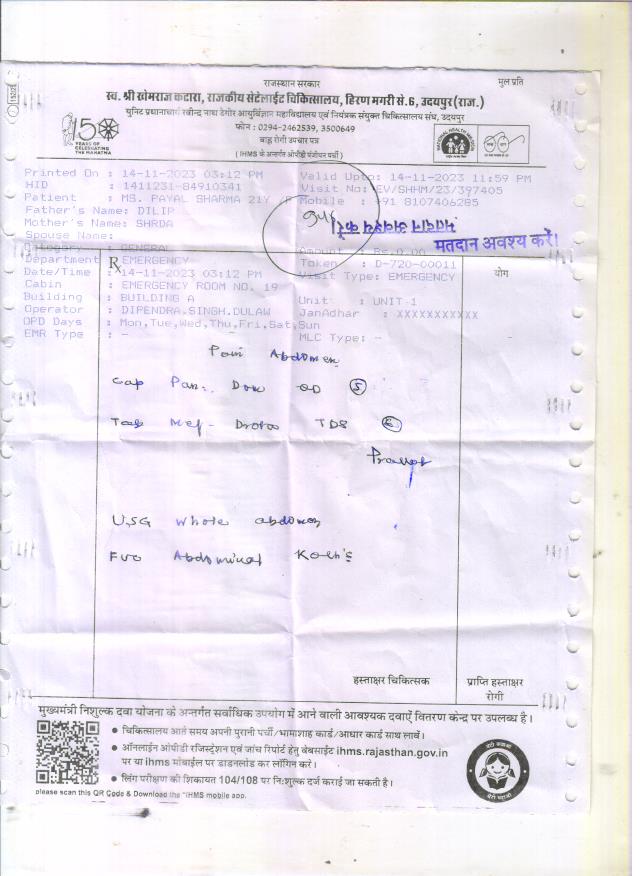 राजस्थान सरकार
मुल प्रति
स्व. श्री खेमराज कटारा, राजकीय सेटेलाईट चिकित्सालय, हिरण मगरी से.6, उदयपुर (राज.)
युनिट प्रधानाचार्य रवीन्द्र नाथ टेगोर आयुर्विज्ञान महाविद्यालय एवं नियंत्रक संयुक्त चिकित्सालय संघ, उदयपुर
फोन : 0294-2462539, 3500649
बाह्य रोगी उपचार पत्र
( IHMS के अन्तर्गत ओपीडी पंजीयन पर्ची )
150 YEARS OF CELEBRATING THE MAHATMA
Printed On : 14-11-2023 03:12 PM Valid Upto: 14-11-2023 11:59 PM
HID : 1411231-84910341 Visit No: EV/SHHM/23/397405
Patient : MS. PAYAL SHARMA 21Y /F Mobile : +91 8107406285
Father's Name: DILIP
Mother's Name: SHRDA
मतदान अवश्य करें।
Spouse Name:
मतदान अवश्य करें।
Category : GENERAL Amount : Rs.0.00
Department : EMERGENCY Token : D-720-00011
Rx
योग
Date/Time : 14-11-2023 03:12 PM Visit Type: EMERGENCY
Cabin : EMERGENCY ROOM NO. 19
Building : BUILDING A Unit : UNIT-1
Operator : DIPENDRA.SINGH.DULAW JanAdhar : XXXXXXXXXXX
OPD Days : Mon,Tue,Wed,Thu,Fri,Sat,Sun
EMR Type : - MLC Type: -
Pain Abdomen
Cap Pan. Dom OD 5
Tab Mef- Drotas TDS
USG whole abdomen
Fuo Abdominal Koch's
हस्ताक्षर चिकित्सक
प्राप्ति हस्ताक्षर
रोगी
मुख्यमंत्री निशुल्क दवा योजना के अन्तर्गत सर्वाधिक उपयोग में आने वाली आवश्यक दवाऐं वितरण केन्द्र पर उपलब्ध है।
● चिकित्सालय आते समय अपनी पुरानी पर्ची/भामाशाह कार्ड/आधार कार्ड साथ लावें।
● ऑनलाईन ओपीडी रजिस्ट्रेशन एवं जांच रिपोर्ट हेतु वेबसाईट ihms.rajasthan.gov.in
पर या ihms मोबाईल पर डाउनलोड कर लॉगिन करे।
● लिंग परीक्षण की शिकायत 104/108 पर नि:शुल्क दर्ज कराई जा सकती है।
please scan this QR Code & Download the "IHMS mobile app.